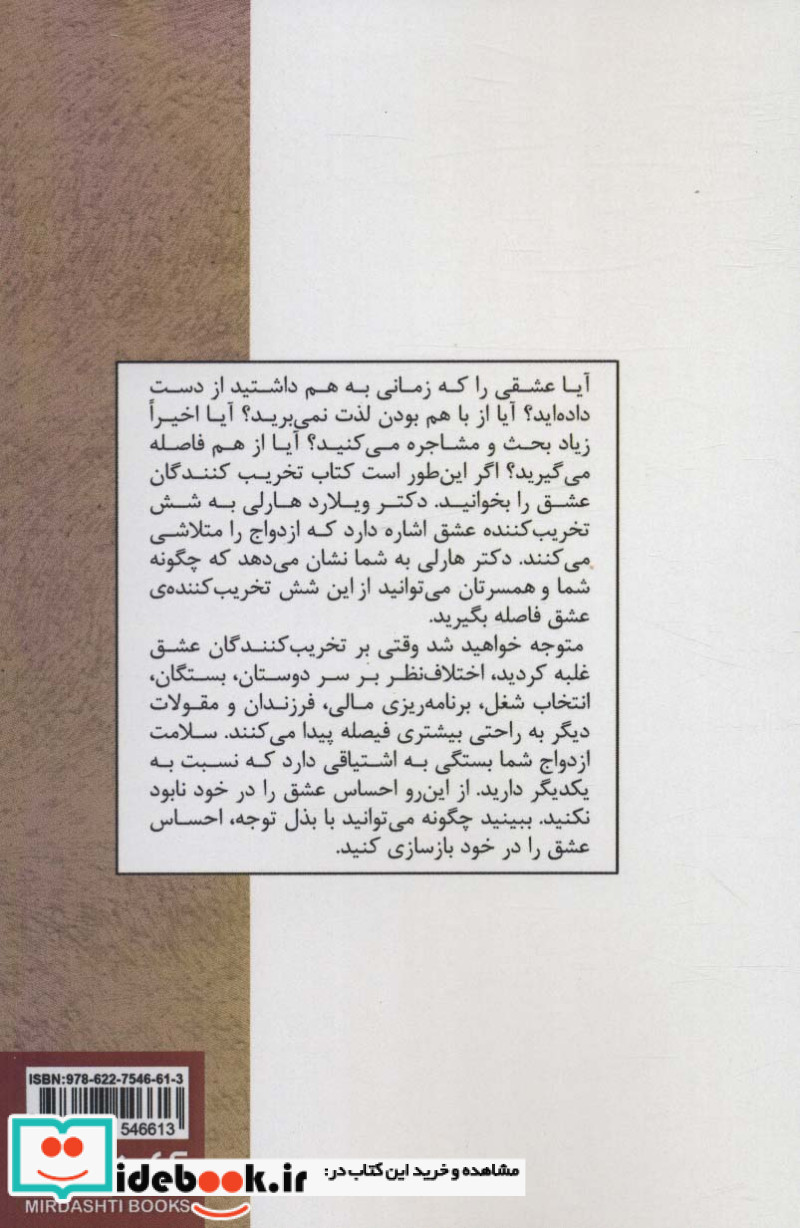 آیا عشقی را که زمانی به هم داشتید از دست
داده‌اید؟ آیا از با هم بودن لذت نمی‌برید؟ آیا اخیراً
زیاد بحث و مشاجره می‌کنید؟ آیا از هم فاصله
می‌گیرید؟ اگر این‌طور است کتاب تخریب کنندگان
عشق را بخوانید. دکتر ویلارد هارلی به شش
تخریب‌کننده عشق اشاره دارد که ازدواج را متلاشی
می‌کنند. دکتر هارلی به شما نشان می‌دهد که چگونه
شما و همسرتان می‌توانید از این شش تخریب‌کننده‌ی
عشق فاصله بگیرید.
متوجه خواهید شد وقتی بر تخریب‌کنندگان عشق
غلبه کردید، اختلاف‌نظر بر سر دوستان، بستگان،
انتخاب شغل، برنامه‌ریزی مالی، فرزندان و مقولات
دیگر به راحتی بیشتری فیصله پیدا می‌کنند. سلامت
ازدواج شما بستگی به اشتیاقی دارد که نسبت به
یکدیگر دارید. از این‌رو احساس عشق را در خود نابود
نکنید. ببینید چگونه می‌توانید با بذل توجه، احساس
عشق را در خود بازسازی کنید.
ISBN:978-622-7546-61-3
546613
مشاهده و خرید این کتاب در:
idebook.ir
MIRDASHTI BOOKS